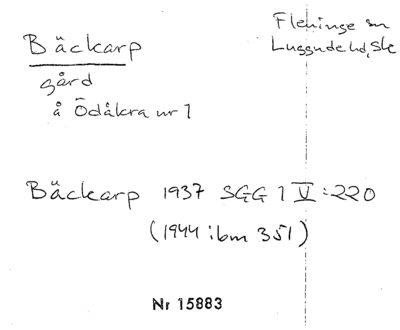 Fleninge sn
Luggude hd, Sk
Bäckarp
gård
å Ödåkra nr 1
Bäckarp 1937 SGG 1 V:220
(1944:bm 351)
Nr 15883